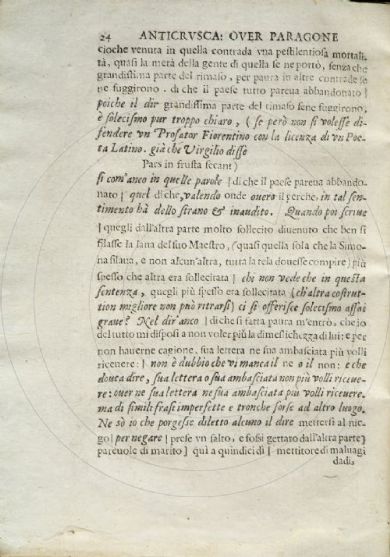 24 ANTICRVSCA: OVER PARAGONE
cioche venuta in quella contrada vna pestilentiosa mortali-
tà, quasi la metà della gente di quella se ne portò, senza che
grandissima parte del rimaso, per paura in altre contrade se
ne fuggirono. di che il paese tutto pareua abbandonato |
poiche il dir grandissima parte del rimaso sene fuggirono,
è solecismo pur troppo chiaro, ( se però non si volesse di-
fendere vn Prosator Fiorentino con la licenza di vn Poe-
ta Latino. già che Virgilio disse
Pars in frusta secant)
sì com'anco in quelle parole | di che il paese pareua abbando-
nato | quel di che, valendo onde ouero il perche, in tal sen-
timento hà dello strano & inaudito. Quando poi scriue
| quegli dall'altra parte molto sollecito diuenuto che ben si
filasse la lana del suo Maestro, (quasi quella sola che la Simo-
na filaua, e non alcun'altra, tutta la tela douesse compire) più
spesso che altra era sollecitata | chi non vede che in questa
sentenza, quegli più spesso era sollecitata (ch'altra costrut-
tion migliore non può ritrarsi) ci si offerisce solecismo assai
graue? Nel dir'anco | di che sì fatta paura m'entrò, che io
del tutto mi disposi a non voler più la dimestichezza di lui: e per
non hauerne cagione, sua lettera ne sua ambasciata più volli
riceuere: | non è dubbio che vi manca il ne o il non: e che
douea dire, sua lettera o sua ambasciata non più volli riceue-
re: ouer ne sua lettera ne sua ambasciata più volli riceuere.
ma di simili frasi imperfette e tronche forse ad altro luogo.
Ne sò io che porgesse diletto alcuno il dire mettersi al nie-
go | per negare | prese vn salto, e fossi gettato dall'altra parte |
pareuole di marito | quì a quindici dì | mettitore di maluagi
dadi